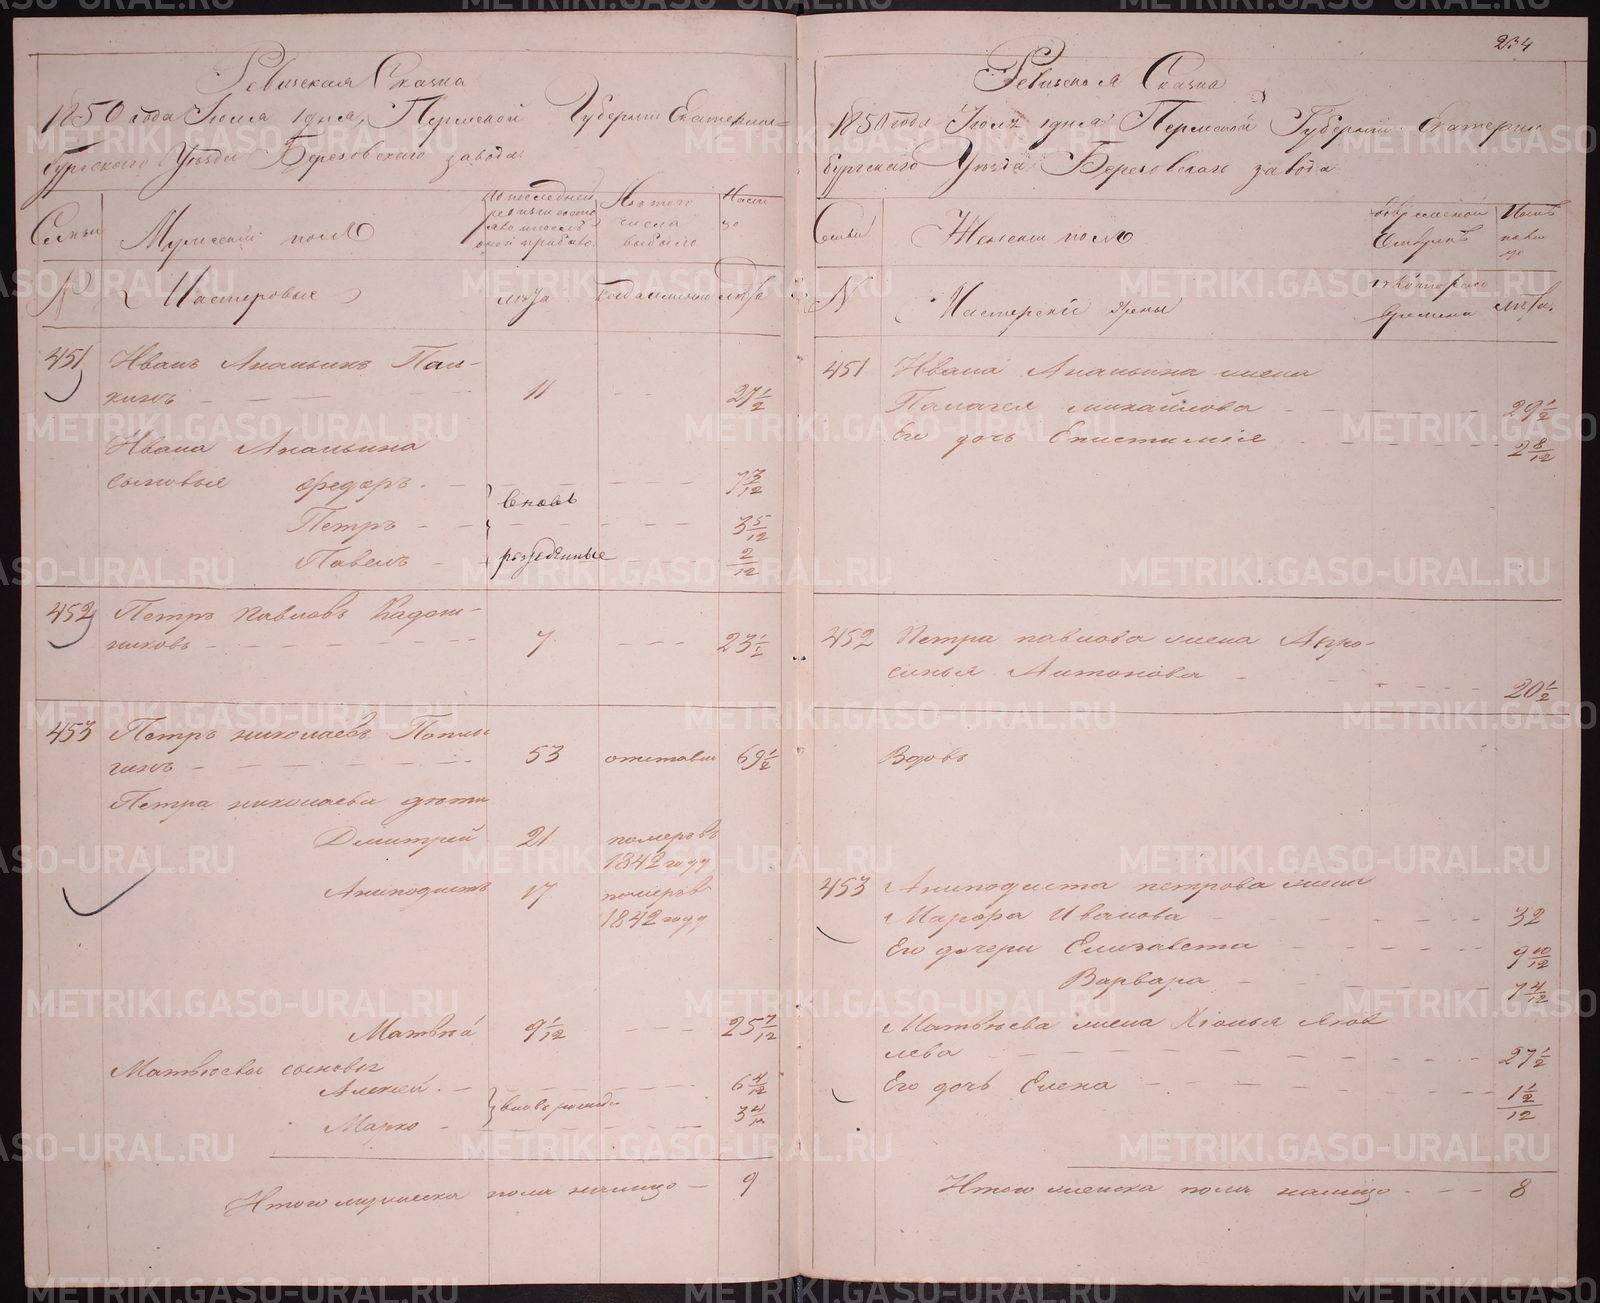 234
Ревизская Сказка
1850 года Июля 1 дня, Пермской Губернии Екатерин=
бургского Уезда Березовского завода
Семьи
Мужеский полъ
По последней
ревизии состо
яло и после
оной прибыло
Изъ того
числа
выбыло
На ли
цо
№
Мастеровые
лета
когда именно
лета
451
Иванъ Ананьинъ Пал-
кинъ
11
27 1/2
Ивана Ананьина
сыновья Федоръ
7 3/12
вновь
Петръ
3 5/12
Павелъ
рожденные
2/12
452
Петръ Павловъ Кадош-
никовъ
7
23 1/2
453
Петръ Николаевъ
53
отставки
69 1/2
Петра Николаева дети
Дмитрий
21
померъ въ
1842 году
Анподистъ
17
померъ въ
1842 году
Матвей
9 1/12
25 7/12
Матвеевы сыновья
Алексей
6 4/12
вновь рожден
Марко
3 4/12
Итого мужеска пола налицо
9
Ревизская Сказка
1850 года Июля 1 дня Пермской Губернии Екатерин
бургского Уезда Березовскаго завода
Семьи
Женский полъ
Во временной
Отлучке
Ныне
нали
цо
№
Мастерские жены
съ котораго
времени
лета.
451
Ивана Ананьина жена
Палагея Михайлова
29 1/2
Его дочь Епистимия
2 8/12
452
Петра Павлова жена Афро-
синья Антонова
20 1/2
Вдовъ
453
Анподиста Петрова жена
Марфа Иванова
32
Его дочери Елизавета
9 10/12
Варвара
7 4/12
Матвеева жена Хионья Яков
лева
27 1/2
Его дочь Елена
1 1/2/12
Итого женска пола налицо
8
METRIKI.GASO-URAL.RU